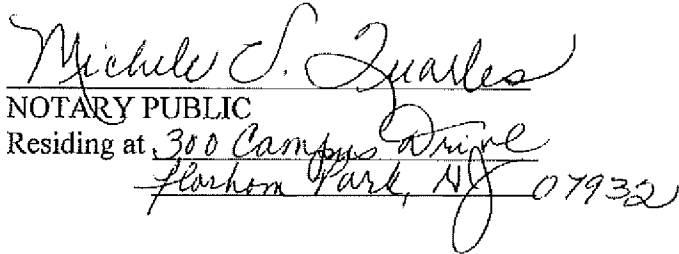 Michele S. Quarles
NOTARY PUBLIC
Residing at 300 Campus Drive
Florham Park, NJ 07932